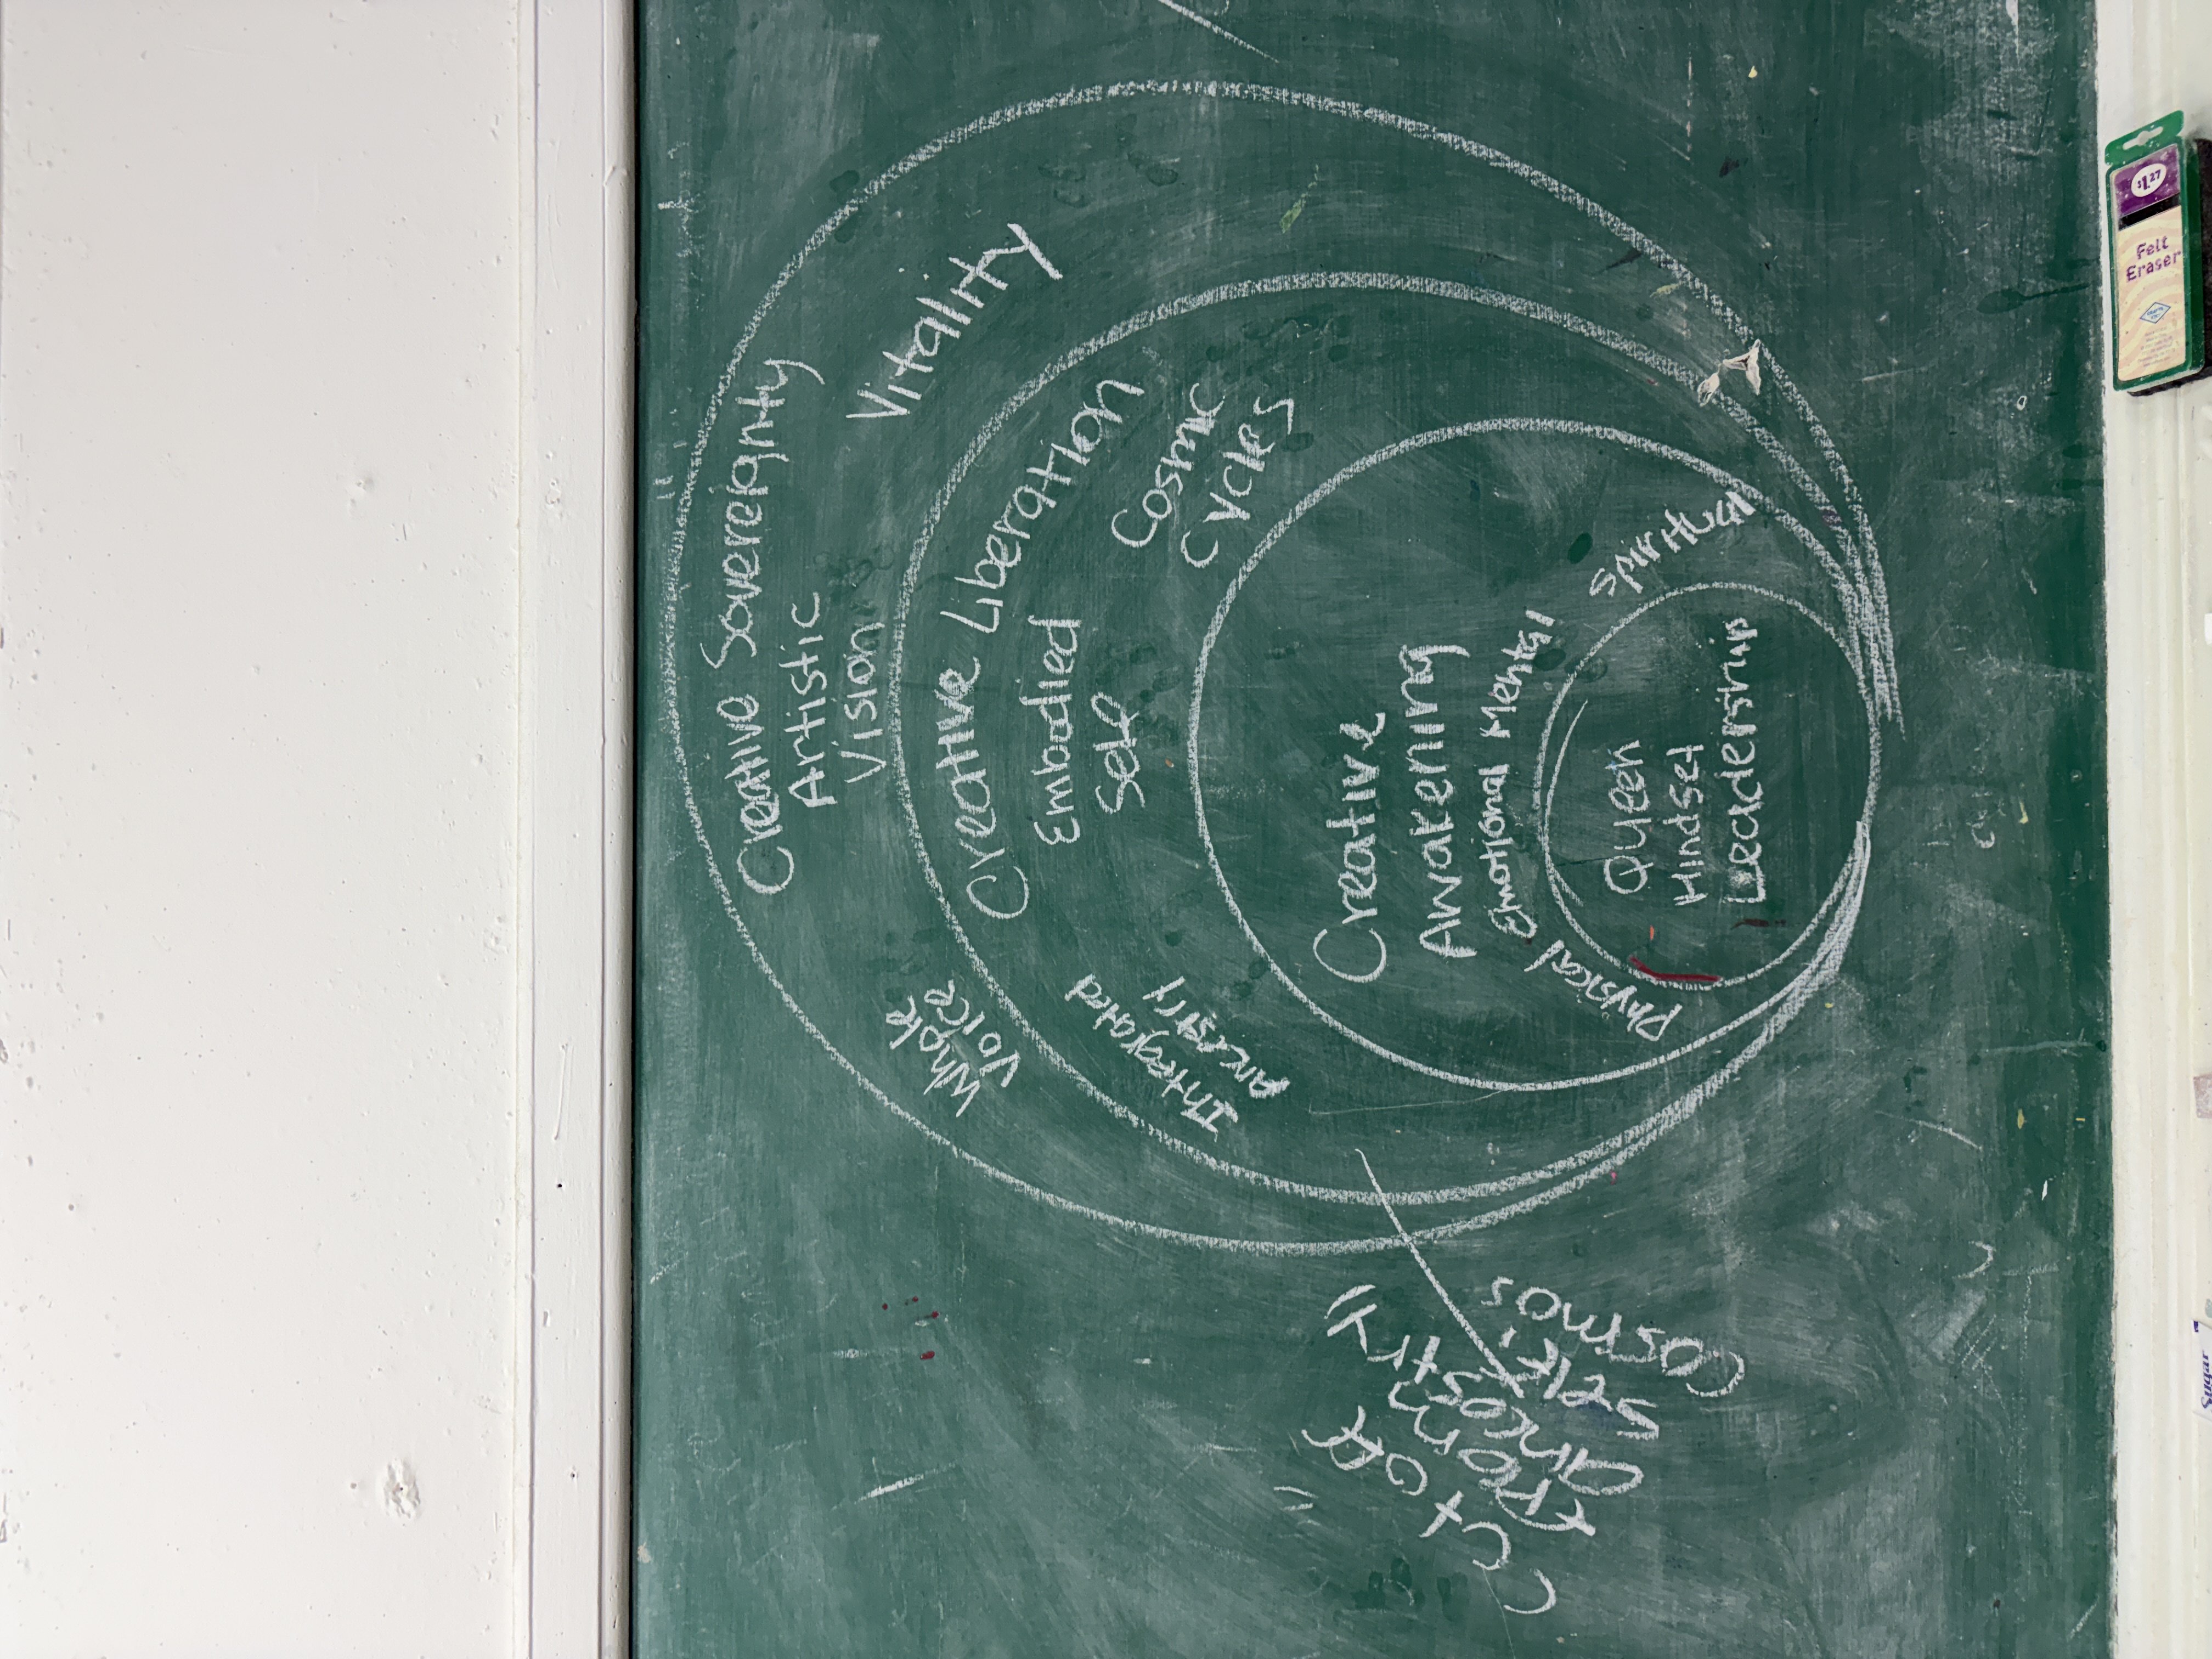 Creative Sovereignty
Artistic
Vision
Whole
Voice
Vitality
Creative Liberation
Embodied
Self
Integrated
Ancestry
Cosmic
Cycles
Creative
Awakening
Physical
Emotional
Mental
Spiritual
Queen
Mindset
Leadership
Cut off
from
ancestry
self,
cosmos
$1.27
Felt
Eraser
Sugar